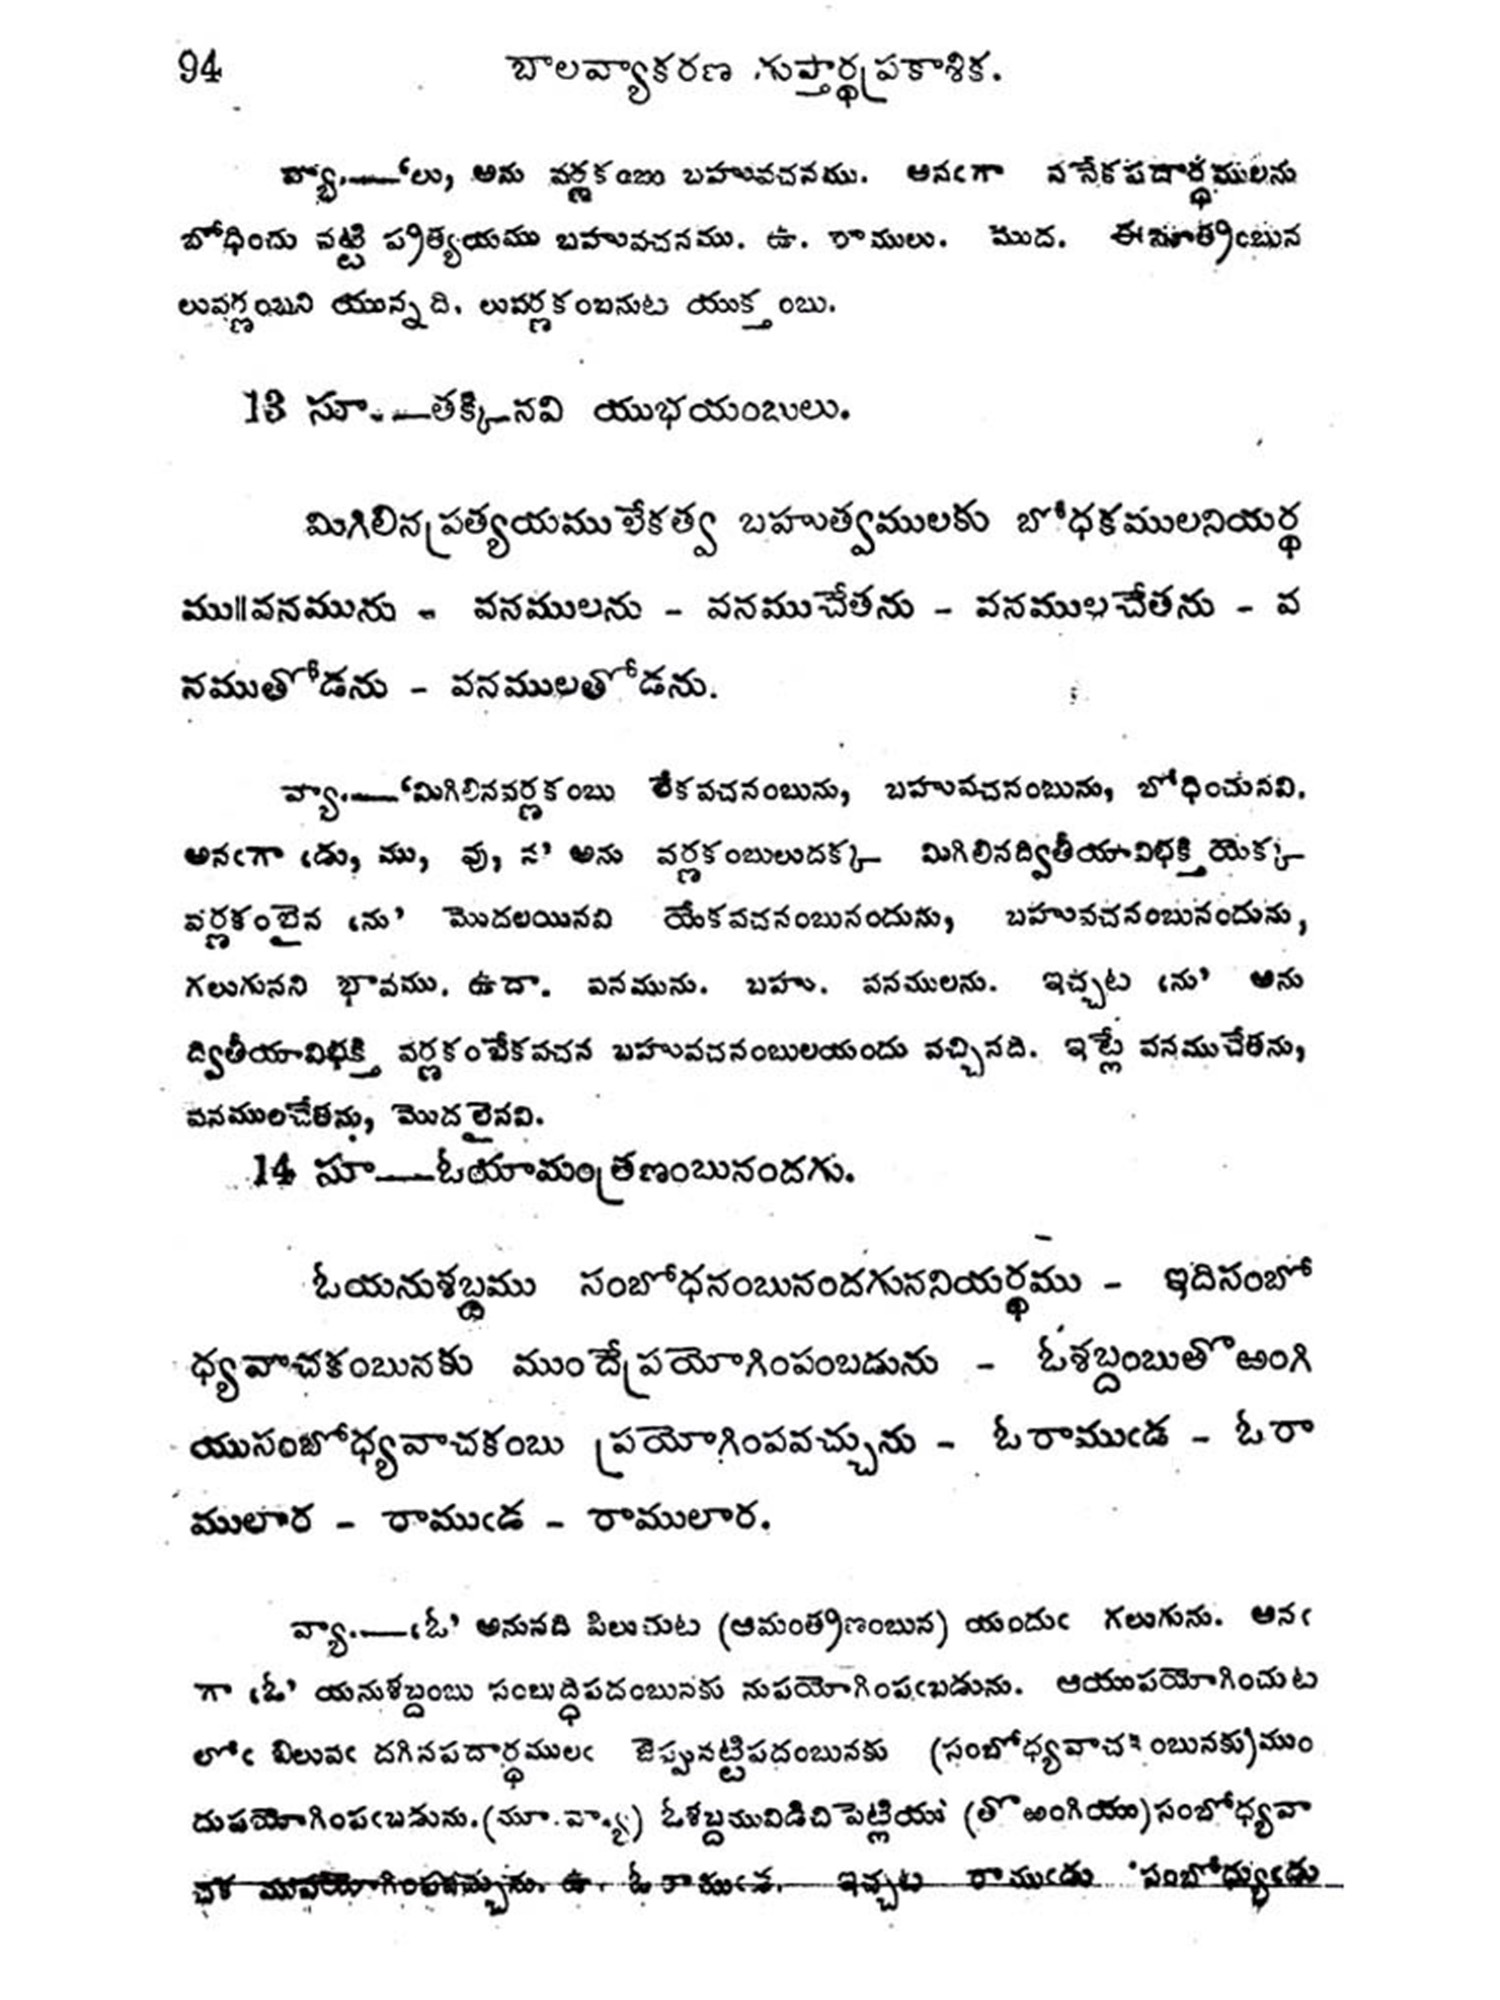 94 బాలవ్యాకరణ గుప్తార్థప్రకాశిక.
వ్యా.—‘లు, అను వర్ణకంబు బహువచనము. అనఁగా ననేకపదార్థములను
బోధించు నట్టి ప్రత్యయము బహువచనము. ఉ. రాములు. మొద. ఈసూత్రంబున
లువర్ణంబని యున్నది. లువర్ణకంబనుట యుక్తంబు.
13 సూ.—తక్కినవి యుభయంబులు.
మిగిలినప్రత్యయములేకత్వ బహుత్వములకు బోధకములనియర్థ
ము॥వనమును - వనములను - వనముచేతను - వనములచేతను - వ
నముతోడను - వనములతోడను.
వ్యా.—‘మిగిలినవర్ణకంబు లేకవచనంబును, బహువచనంబును, బోధించునవి.
అనఁగా ‘డు, ము, వు, న’ అను వర్ణకంబులుదక్క మిగిలినద్వితీయావిభక్తి యొక్క
వర్ణకంబైన ‘ను’ మొదలయినవి యేకవచనంబునందును, బహువచనంబునందును,
గలుగునని భావము. ఉదా. వనమును. బహు. వనములను. ఇచ్చట ‘ను’ అను
ద్వితీయావిభక్తి వర్ణకంబేకవచన బహువచనంబులయందు వచ్చినది. ఇట్లే వనముచేతను,
వనములచేతను, మొదలైనవి.
14 సూ—ఓయామంత్రణంబునందగు.
ఓయనుశబ్దము సంబోధనంబునందగుననియర్థము - ఇదిసంబో
ధ్యవాచకంబునకు ముందేప్రయోగింపంబడును - ఓశబ్దంబుతొఱంగి
యుసంబోధ్యవాచకంబు ప్రయోగింపవచ్చును - ఓరాముఁడ - ఓరా
ములార - రాముఁడ - రాములార.
వ్యా.—‘ఓ’ అనునది పిలుచుట (ఆమంత్రణంబున) యందుఁ గలుగును. అనఁ
గా ‘ఓ’ యనుశబ్దంబు సంబుద్ధిపదంబునకు నుపయోగింపఁబడును. ఆయుపయోగించుట
లోఁ బిలువఁ దగినపదార్థములఁ జెప్పునట్టిపదంబునకు (సంబోధ్యవాచకంబునకు)ముం
దుపయోగింపఁబడును.(సూ.వ్యా) ఓశబ్దమువిడిచిపెట్టియు (తొఱంగియు)సంబోధ్యవా
చక ముపయోగింపవచ్చును. ఉ. ఓ రాముఁడ. ఇచ్చట రాముఁడు సంబోధ్యుఁడు